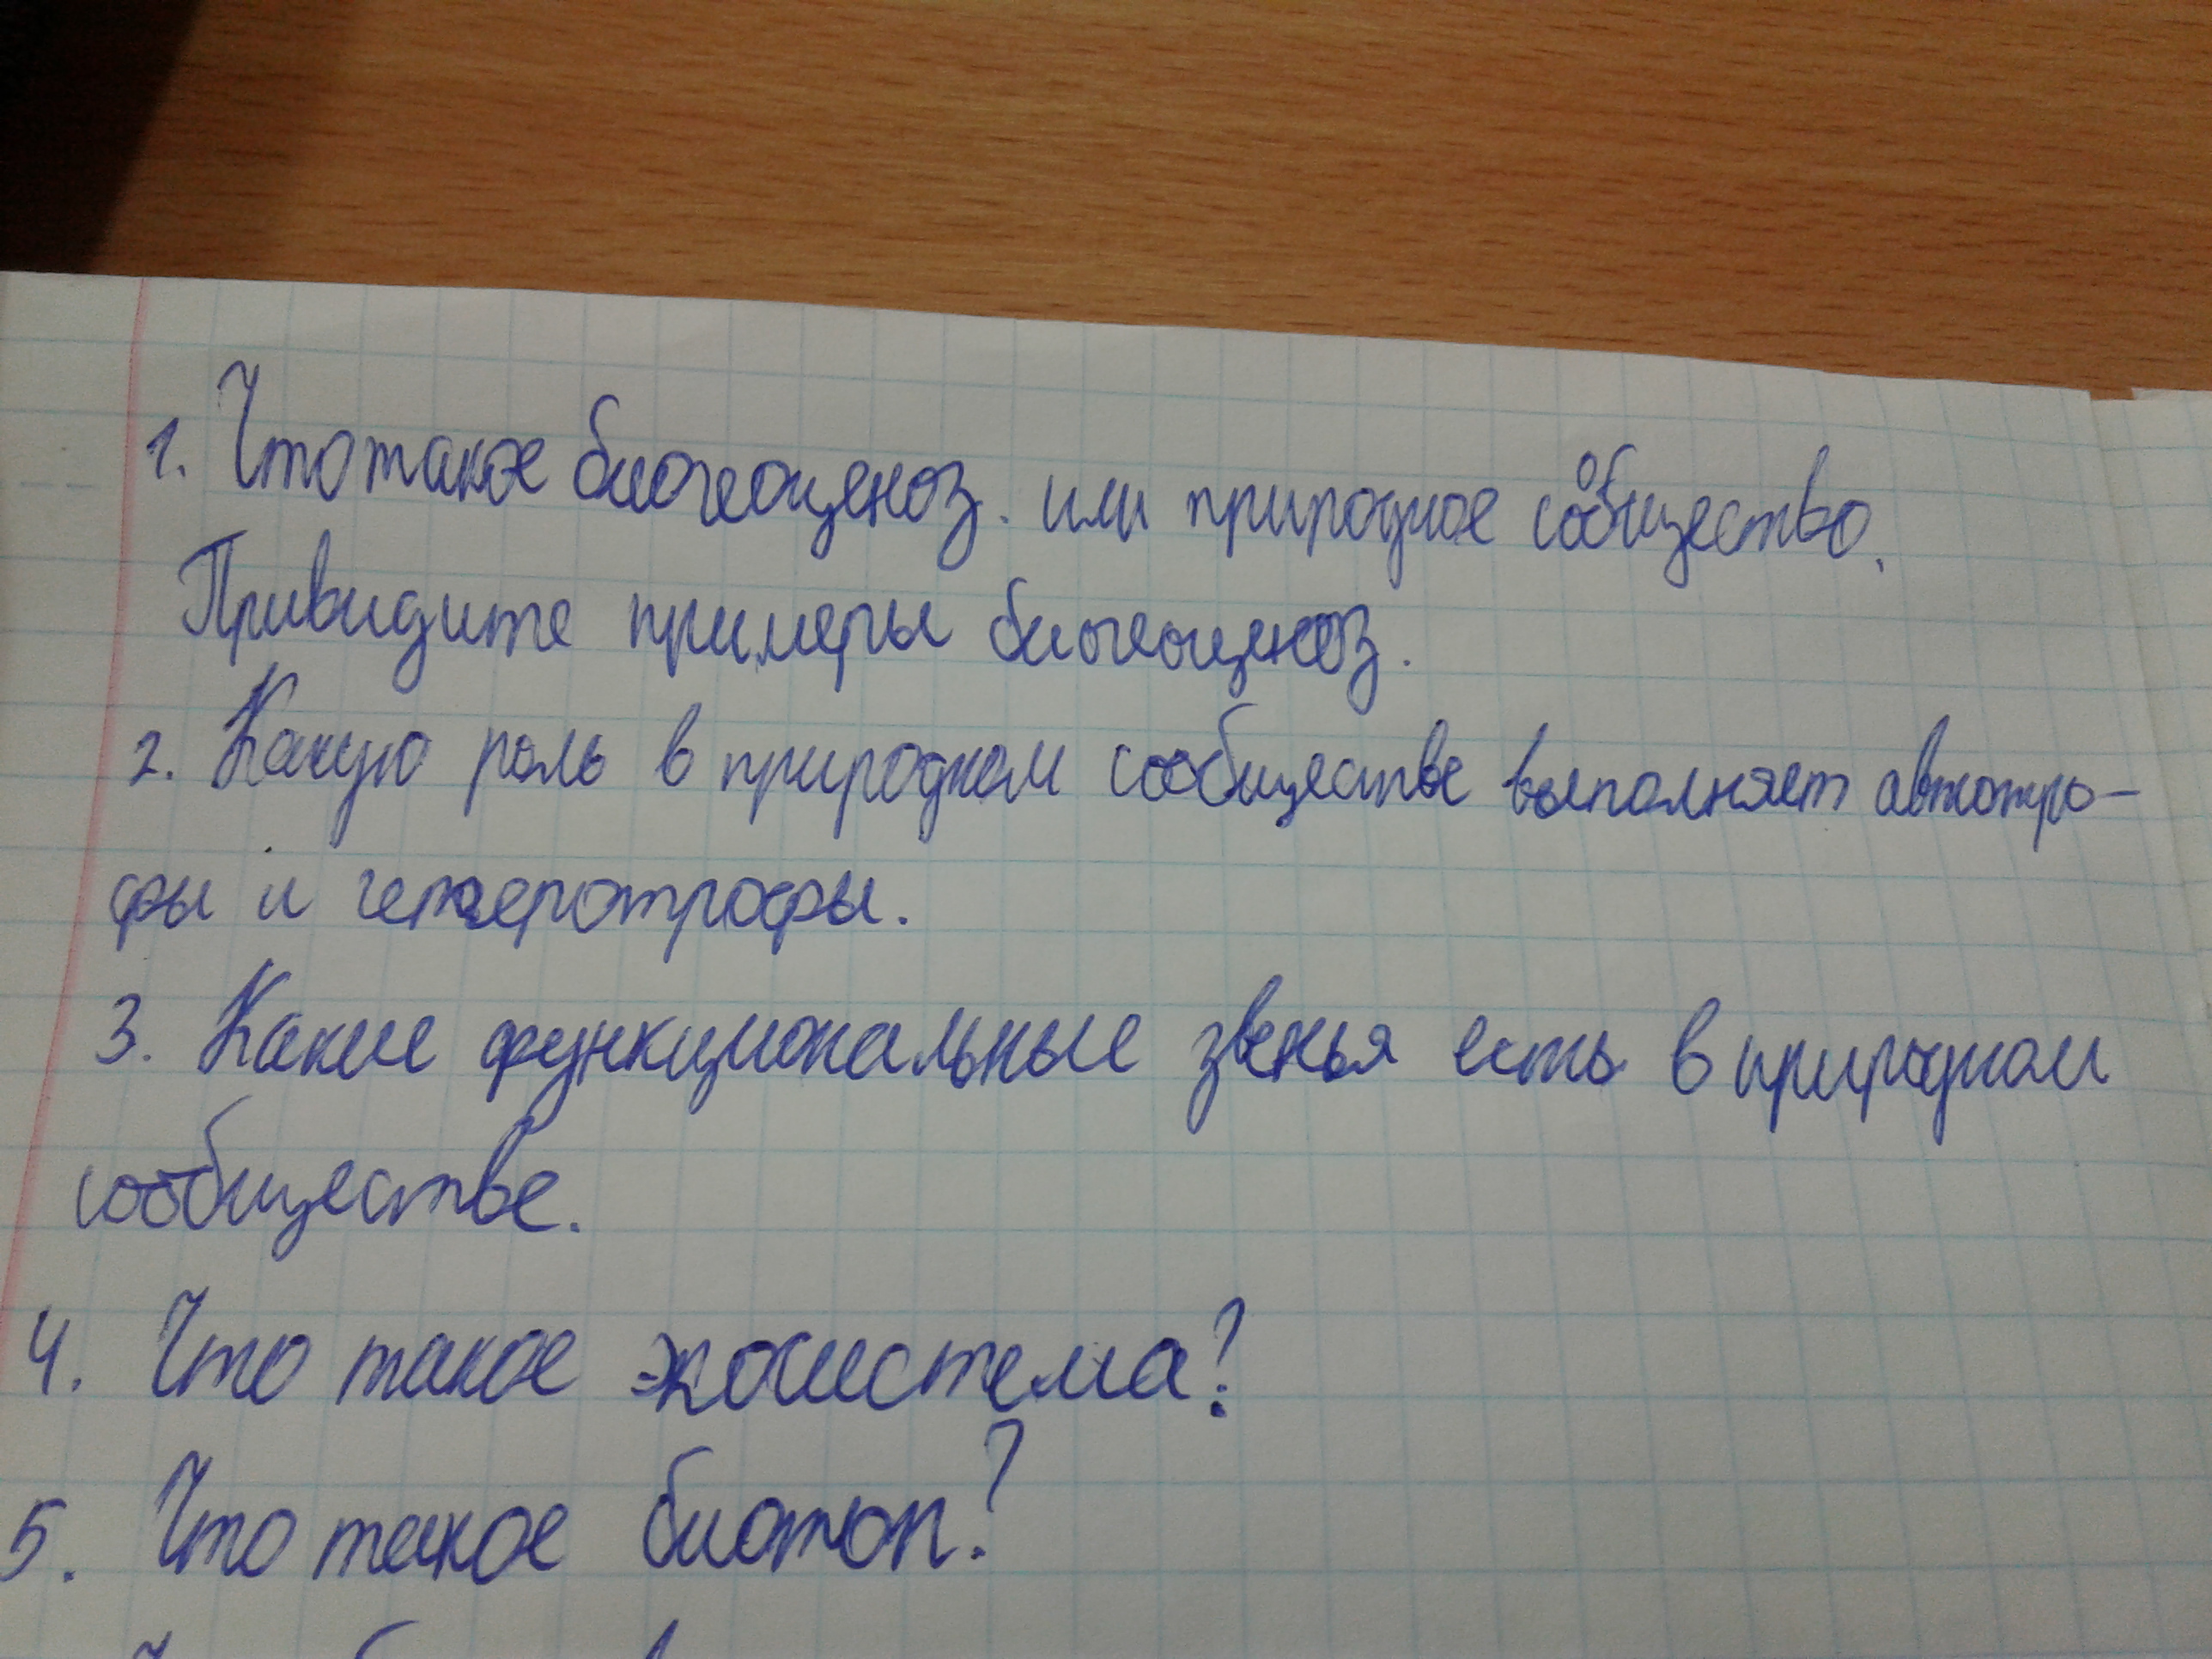 1. Что такое биогеоценоз. или природное сообщество.
Привидите примеры биогеоценоз.
2. Какую роль в природном сообществе выполняет автотро-
фы и гетеротрофы.
3. Какие функциональные звенья есть в природном
сообществе.
4. Что такое экосистема?
5. Что такое биотоп?